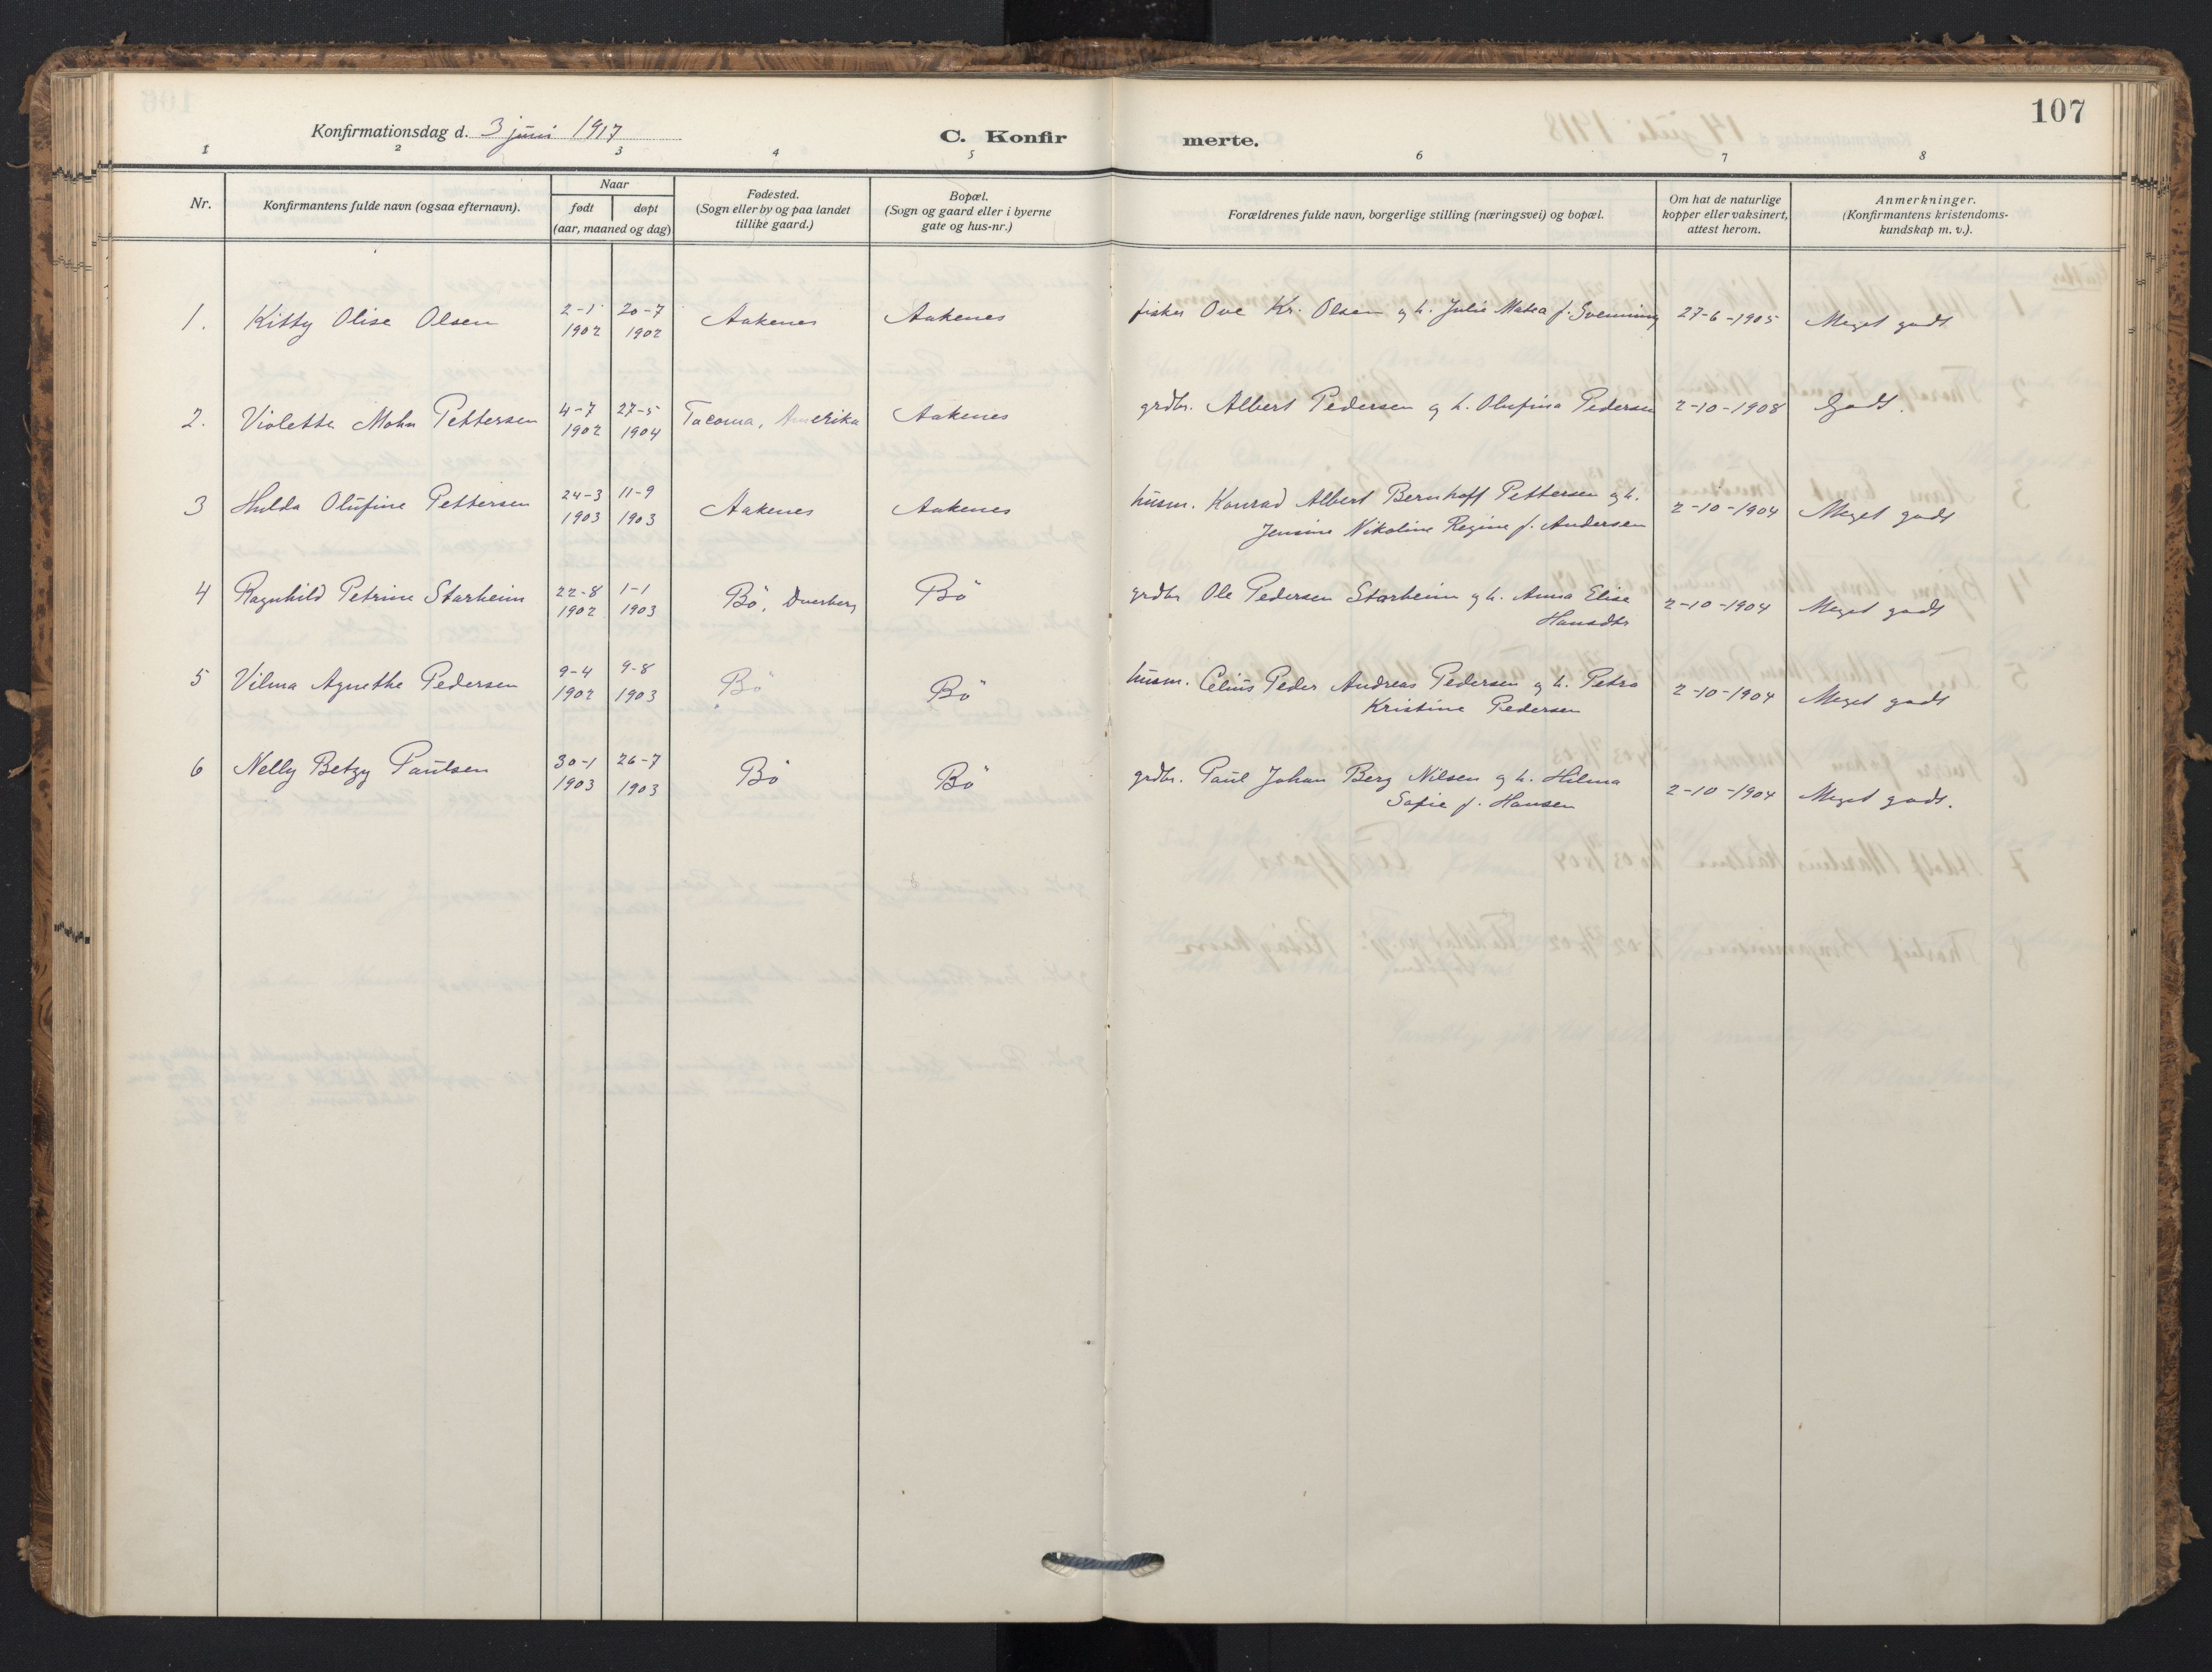 107
Konfirmationsdag d. 3 juni 1917
C. Konfir merte.
1 2 3 4 5 6 7 8
Nr.
Konfirmantens fulde navn (ogsaa efternavn).
Naar
født døpt
(aar, maaned og dag)
Fødested.
(Sogn eller by og paa landet
tillike gaard.)
Bopæl.
(Sogn og gaard eller i byerne
gate og hus-nr.)
Forældrenes fulde navn, borgerlige stilling (næringsvei) og bopæl.
Om hat de naturlige
kopper eller vaksinert,
attest herom.
Anmerkninger.
(Konfirmantens kristendoms-
kundskap m. v.).
1. Kitty Olise Olsen 2-1 20-7 Aakenes Aakenes fisker Ove Kr. Olsen og h. Julie Matea f. Svenning 27-6-1905 Meget godt
1902 1902
2. Violetta Mohn Pettersen 4-7 27-5 Tacoma, Amerika Aakenes grdbr. Albert Pedersen og h. Olufina Pedersen 2-10-1908 Godt.
1902 1904
3 Hulda Olufine Pettersen 24-3 11-9 Aakenes Aakenes husm. Konrad Albert Bernhoff Pettersen og h. 2-10-1904 Meget godt
1903 1903 Jensine Nikoline Regine f. Andersen
4 Ragnhild Petrine Starheim 22-8 1-1 Bö, Dverberg Bö grdbr Ole Pedersen Starheim og h. Anna Elise 2-10-1904 Meget godt
1902 1903 Hansdtr
5 Vilma Agnethe Pedersen 9-4 9-8 Bö Bö husm. Celius Peder Andreas Pedersen og h. Petra 2-10-1904 Meget godt
1902 1903 Kristine Pedersen
6 Nelly Betzy Paulsen 30-1 26-7 Bö Bö grdbr. Paul Johan Berg Nilsen og h. Hilma 2-10-1904 Meget godt.
1903 1903 Sofie f. Hansen